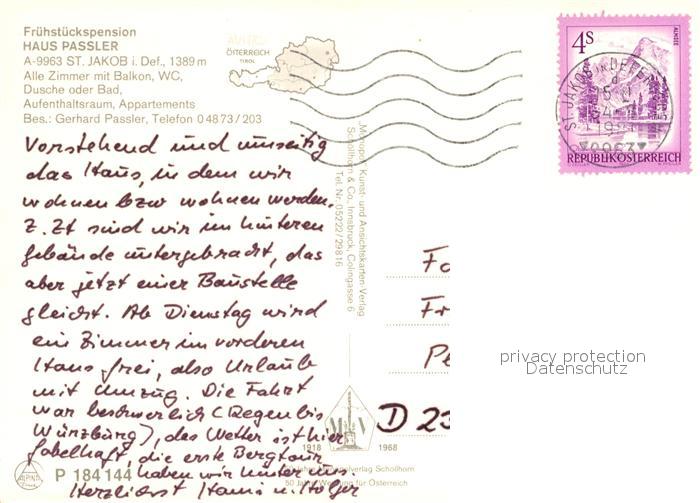 Frühstückspension
HAUS PASSLER
A-9963 ST. JAKOB i. Def., 1389 m
Alle Zimmer mit Balkon, WC,
Dusche oder Bad,
Aufenthaltsraum, Appartements
Bes.: Gerhard Passler, Telefon 0 48 73 / 203
AUSTRIA
ÖSTERREICH
TIROL
Vorstehend und umseitig
das Haus, in dem wir
wohnen bzw wohnen werden.
Z. Zt sind wir im hinteren
Gebäude untergebracht, das
aber jetzt einer Baustelle
gleicht. Ab Dienstag wird
ein Zimmer im vorderen
Haus frei, also Urlaub
mit Umzug. Die Fahrt
war beschwerlich (Regen bis
Würzburg), das Wetter ist hier
fabelhaft, die erste Bergtour
haben wir hinter uns.
Herzlichst Hanni u. Holger
ALPINA
P 184 144
1918 M V 1968
50 Jahre Monopolverlag Schollhorn
50 Jahre Werbung für Österreich
„Monopol" Kunst- und Ansichtskarten-Verlag
Schollhorn & Co., Innsbruck, Colingasse 6
Tel. Nr. 05222/29816
4S
ALMSEE
REPUBLIK ÖSTERREICH
ST. JAKOB IN DEFER
9963
Fr
D 23
privacy protection
Datenschutz